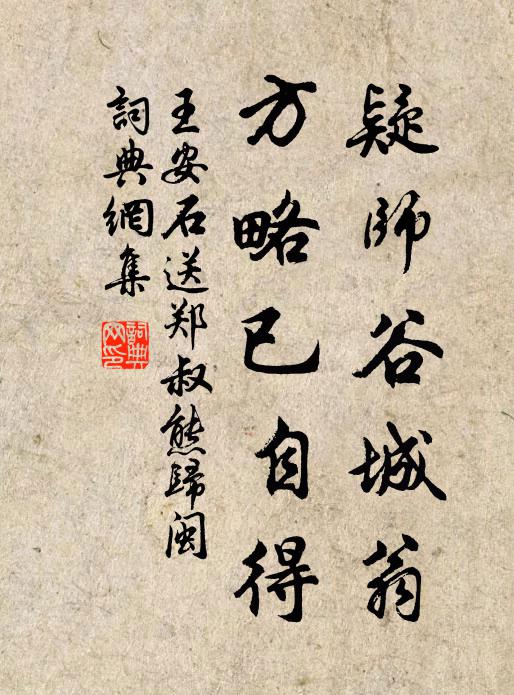 疑師谷城翁
方略已自得
王安石送郑叔熊歸闽
詞典網集
詞典网印